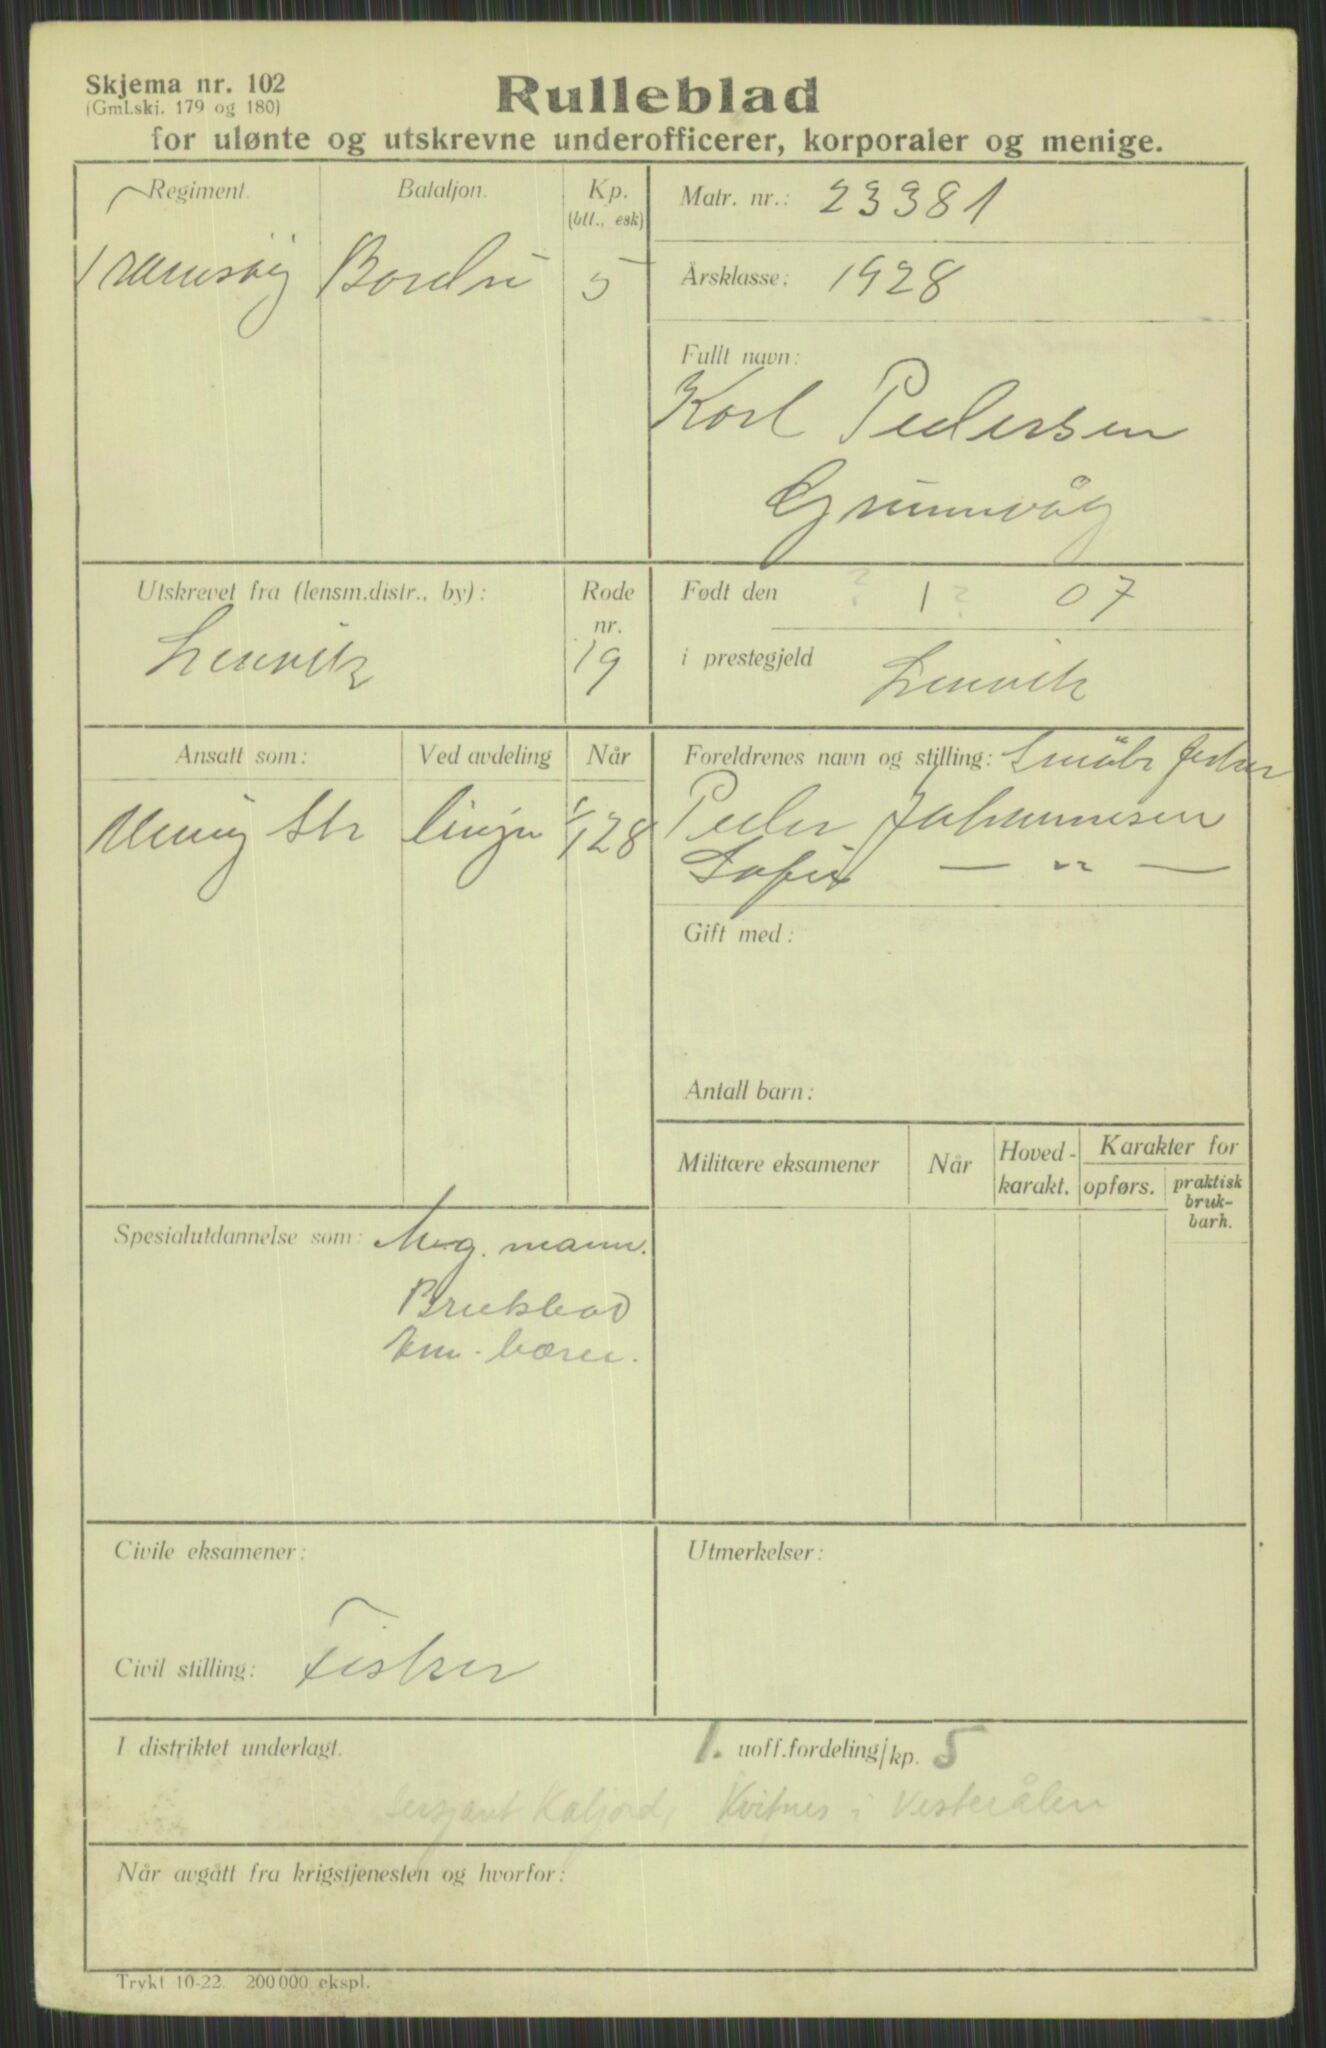 Skjema nr. 102
(Gml.skj. 179 og 180)
Rulleblad
for ulønte og utskrevne underofficerer, korporaler og menige.
Regiment. Bataljon. Kp. (btt., esk)
Bardu 5
Matr. nr.: 23381
Årsklasse: 1928
Fullt navn:
Karl Pedersen
Grunnvåg
Utskrevet fra (lensm.distr., by): Rode nr.
Lenvik 19
Født den 1 07
i prestegjeld Lenvik
Ansatt som: Ved avdeling Når
Menig Str linjen 1/1 28
Foreldrenes navn og stilling: Småbr fisker
Peder Johannesen
Sofie — " —
Gift med:
Antall barn:
Militære eksamener Når Hoved-karakt. Karakter for
opførs. praktisk bruk-barh.
Spesialutdannelse som: M.g. mann.
Brukbar
Am. bærer.
Civile eksamener:
Utmerkelser:
Civil stilling: Fisker
I distriktet underlagt. 1. uoff.fordeling/kp. 5
Sersjant Kaljord, Kvitnes i Vesterålen
Når avgått fra krigstjenesten og hvorfor:
Trykt 10-22. 200 000 ekspl.